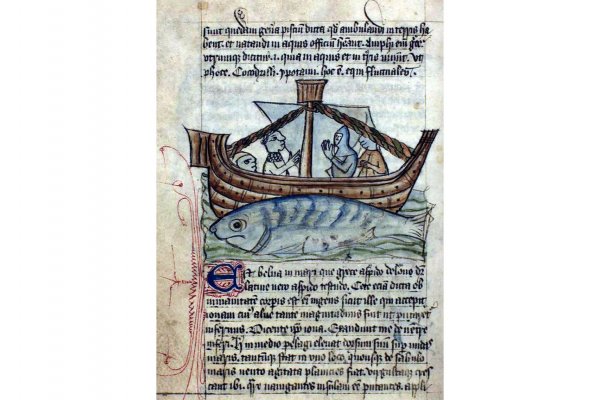 sunt quedam gen̄a pisciū dicta qd̄ ambulandi in terris ha
bent. et natandi in aquis officiū hēant. Amphi em̄ grec̄
vtrumque dicitur .i. quia in aquis et in t̄ris viuūt. vt
phoce. Cocodrilli. ypotami. hoc ē. equi fluctuales.
Est belua in mari que grece aspido delone dr̄
latine vero aspido testudo. Cete etiā dicta ob
inmanitatem corpis est em̄ ingens sicut ille qui excepit
ionam cui᷒ alu᷒ tante magnitudinis fuit ut putaret᷑
infernus. Dicente ip̄o iona. Exaudiuit me de uentre
inferi. in medio pelagi eleuat dorsum suū sup undas
maris. tantūque stat in vno loco quousque de sabulo
maris vento agitata planicies fiat. virgultaque cres
cant ibi. nauigantes insulam eē putantes. appli